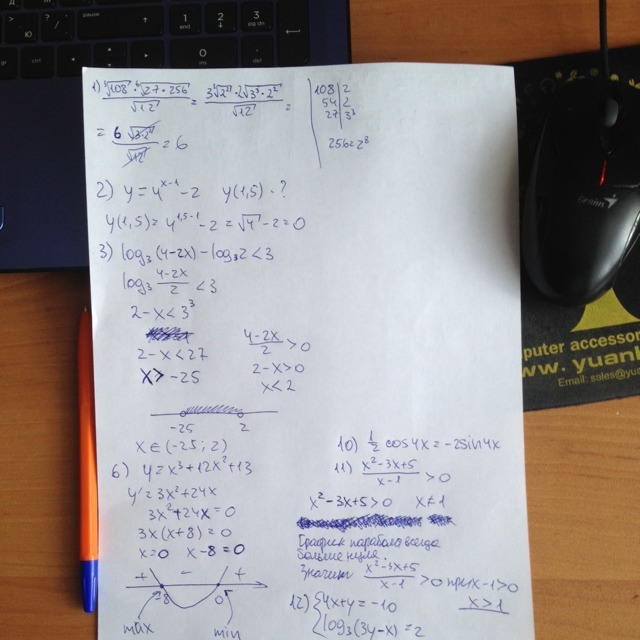 1) ∛108 · ⁶√27·256 / √12 = 3∛2² · 2√3³·2² / √12 =
= 6 √3·2² / √12 = 6
108 | 2
54 | 2
27 | 3³
256=2⁸
2) y = 4ˣ⁻¹ - 2 y(1,5) - ?
y(1,5) = 4¹,⁵⁻¹ - 2 = √4 - 2 = 0
3) log₃(4-2x) - log₃2 < 3
log₃ (4-2x)/2 < 3
2-x < 3³
2-x < 27
x > -25
(4-2x)/2 > 0
2-x > 0
x < 2
-25 2
x ∈ (-25; 2)
6) y = x³ + 12x² + 13
y' = 3x² + 24x
3x² + 24x = 0
3x(x+8) = 0
x = 0 x-8 = 0
+ - +
-8 0
max min
10) 1/2 cos4x = -2sin4x
11) (x²-3x+5)/(x-1) > 0
x²-3x+5 > 0 x ≠ 1
График парабола всегда
больше нуля.
Значит (x²-3x+5)/(x-1) > 0 при x-1 > 0
x > 1
12) { 4x+y = -10
log₃(3y-x) = 2
Genius
puter accessor
ww. yuank
Email: sales@yua